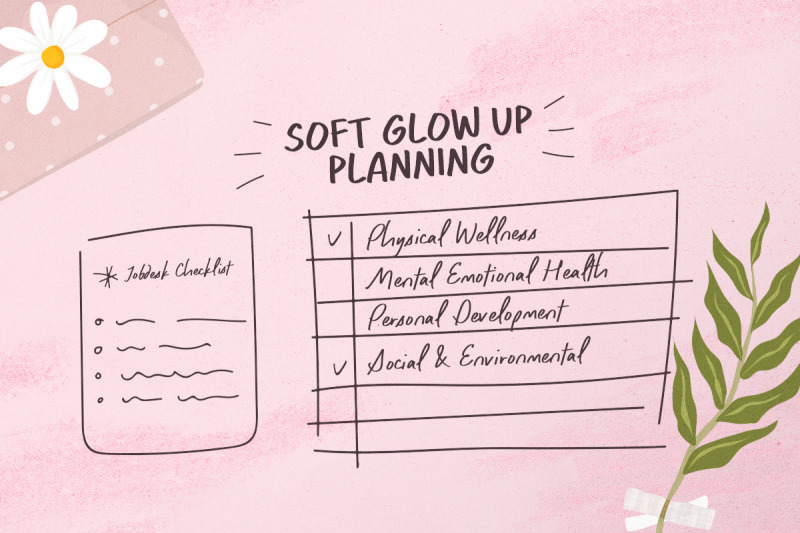 SOFT GLOW UP
PLANNING
* Jobdesk Checklist
Physical Wellness
Mental Emotional Health
Personal Development
Social & Environmental